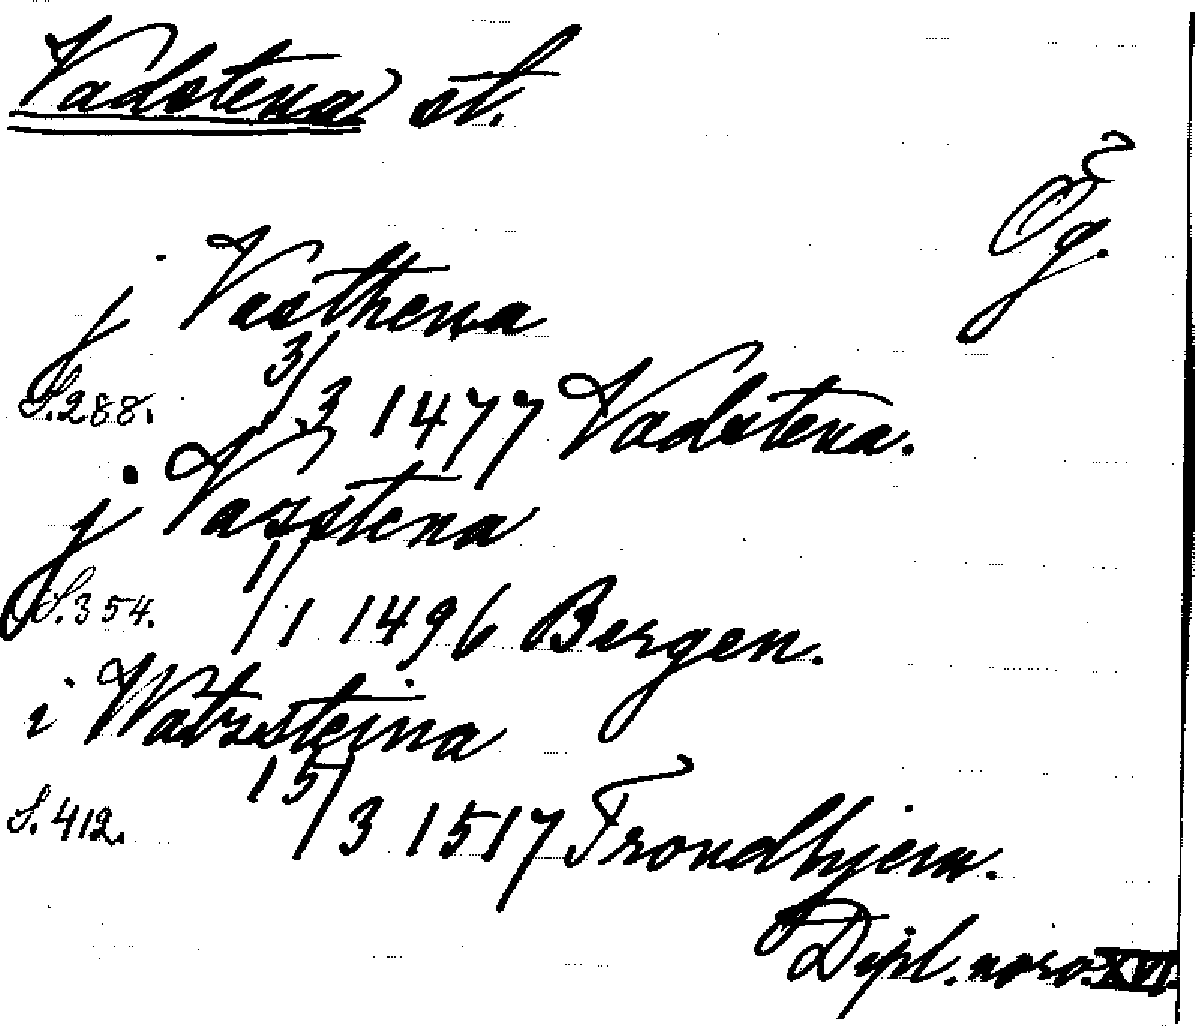 Vadstena st.
Ög.
j Vasthena
S. 288. 3/3 1477 Vadstena.
j Vazstena
S. 354. 1/1 1496 Bergen.
i Watzsteina
S. 412. 15/3 1517 Trondhjem.
Dipl. norv. XVI.